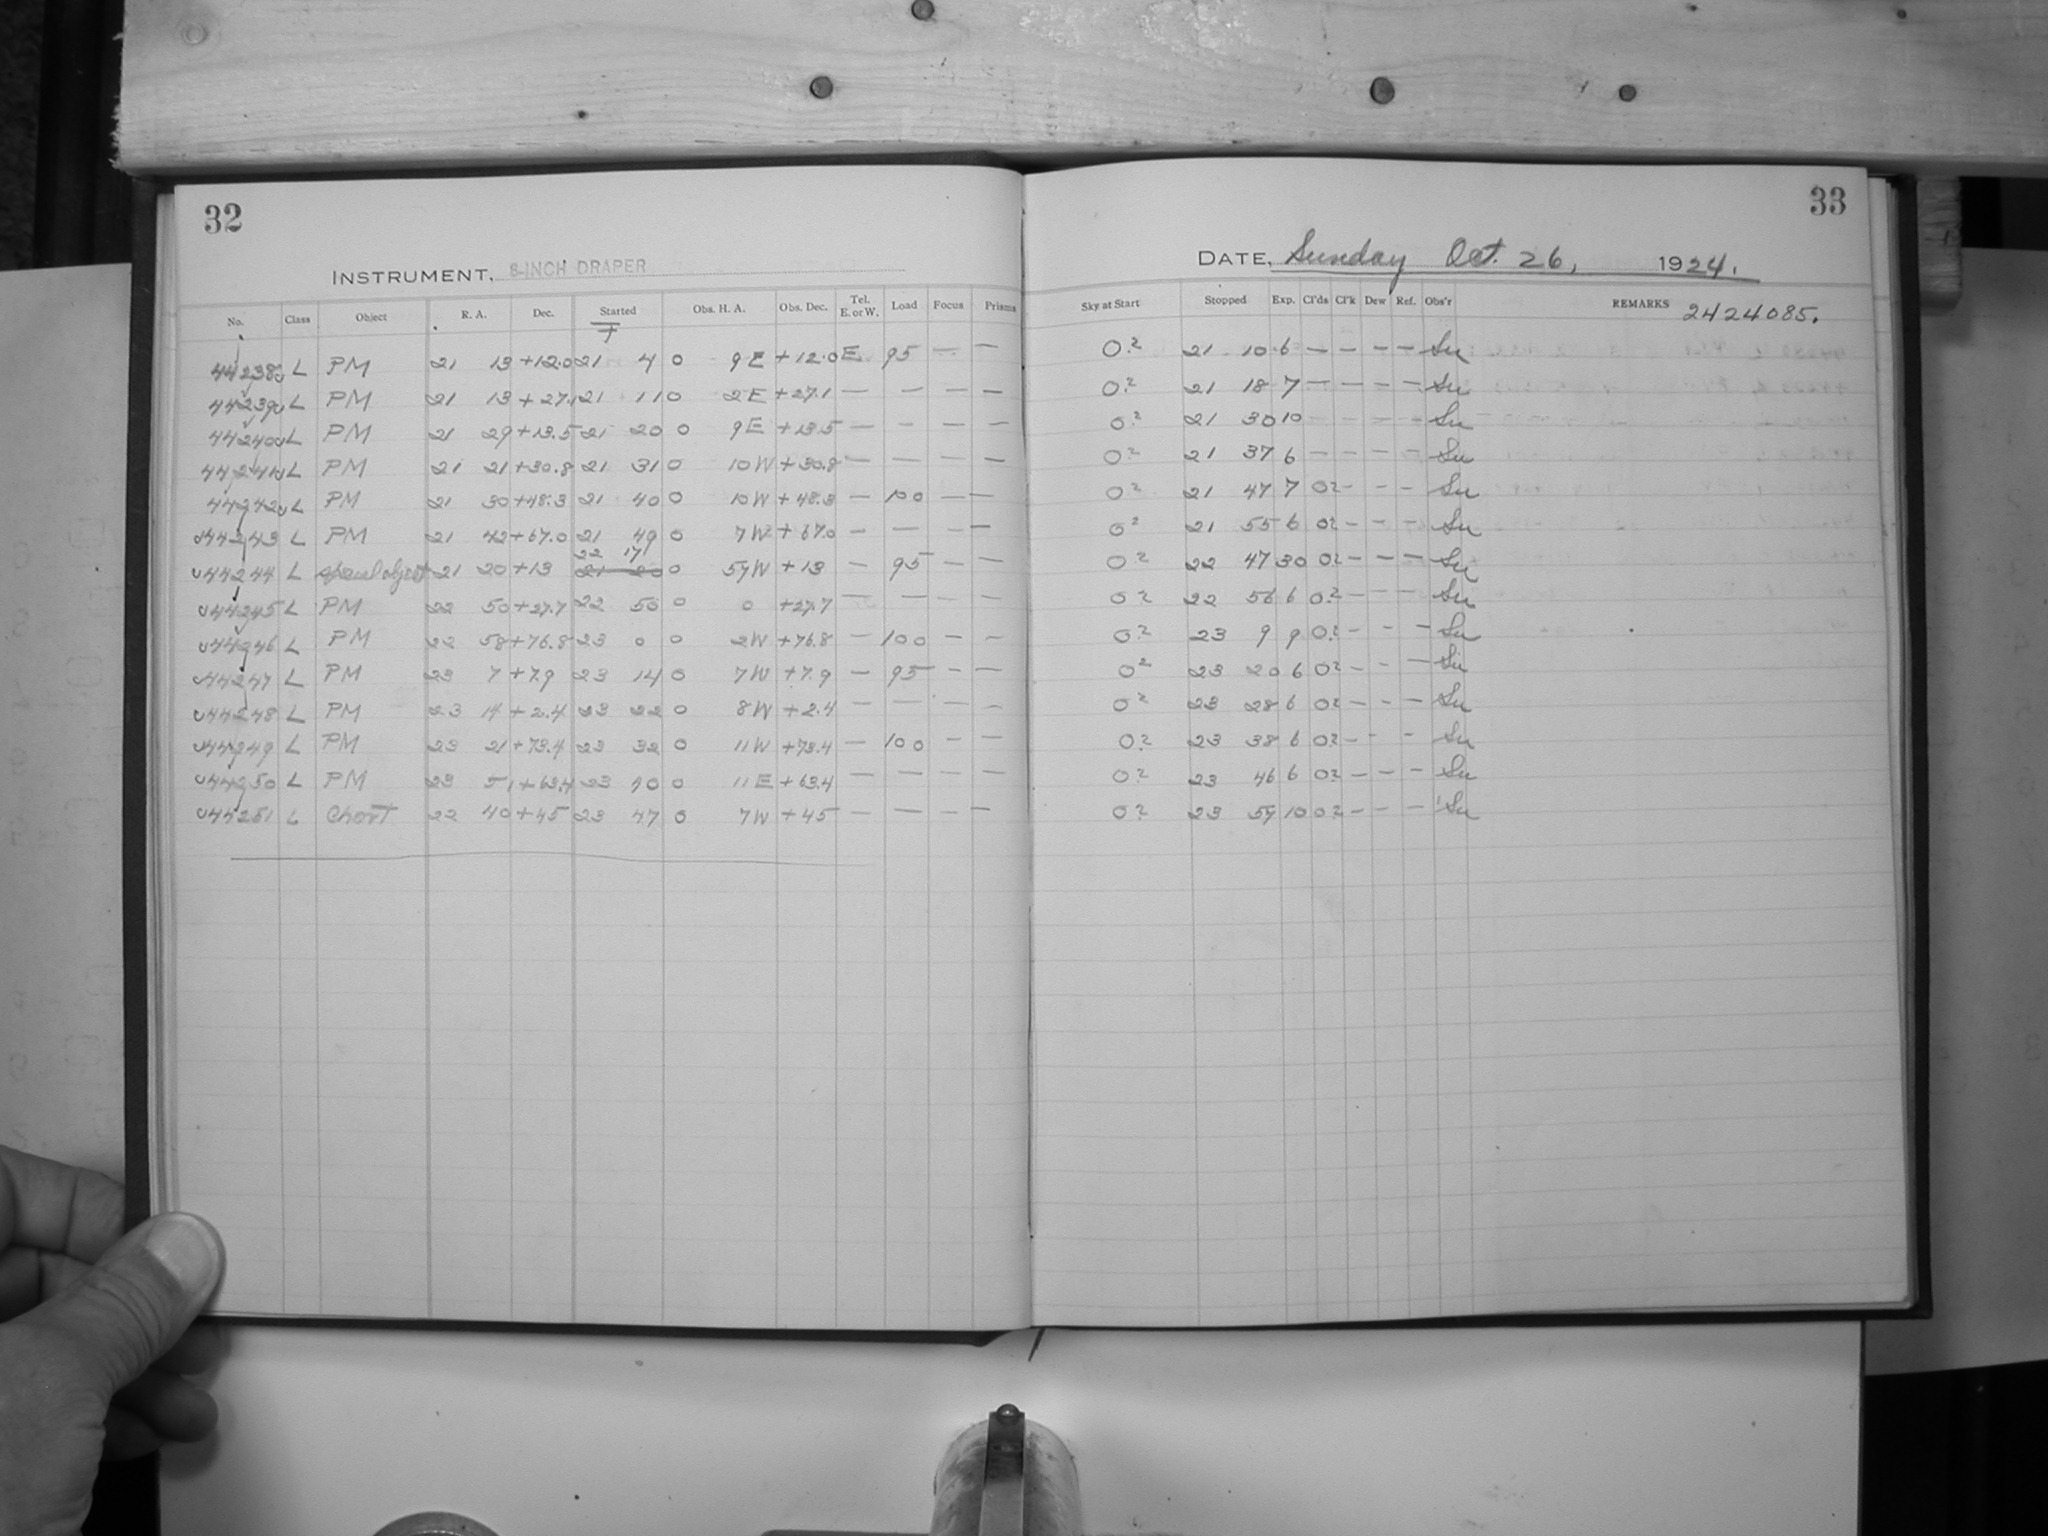 32
INSTRUMENT, 8-INCH DRAPER
No. Class Object R. A. Dec. Started Obs. H. A. Obs. Dec. Tel. E. or W. Load Focus Prisms
44238 L PM 21 13 +12.0 21 4 0 9 E +12.0 E 95 — —
44239 L PM 21 13 +27.1 21 11 0 2 E +27.1 — — — —
44240 L PM 21 29 +13.5 21 20 0 9 E +13.5 — - — —
44241 L PM 21 21 +30.8 21 31 0 10 W +30.8 — — — —
44242 L PM 21 30 +48.3 21 40 0 10 W +48.3 — 100 — —
44243 L PM 21 42 +67.0 21 49 0 7 W +67.0 — — — —
22 17
44244 L 21 20 +13 21 20 0 57 W +13 — 95 — —
44245 L PM 22 50 +27.7 22 50 0 0 +27.7 — — — —
44246 L PM 22 58 +76.8 23 0 0 2 W +76.8 — 100 - —
44247 L PM 23 7 +7.9 23 14 0 7 W +7.9 — 95 — —
44248 L PM 23 14 +2.4 23 22 0 8 W +2.4 — — — —
44249 L PM 23 21 +73.4 23 32 0 11 W +73.4 — 100 — —
44250 L PM 23 51 +63.4 23 40 0 11 E +63.4 — — — —
44251 L Chart 22 40 +45 23 47 0 7 W +45 — — — —
33
DATE, Sunday Oct. 26, 1924.
Sky at Start Stopped Exp. Cl'ds Cl'k Dew Ref. Obs'r REMARKS 2424085.
0? 21 10 6 — — — — Su
0? 21 18 7 — — — — Su
0? 21 30 10 — — — — Su
0? 21 37 6 — — — — Su
0? 21 47 7 0? - - - Su
0? 21 55 6 0? - - — Su
0? 22 47 30 0? — — — Su
0? 22 56 6 0? — — — Su
0? 23 9 9 0? - - — Su
0? 23 20 6 0? — - — Su
0? 23 28 6 0? — — — Su
0? 23 38 6 0? - - - Su
0? 23 46 6 0? — — — Su
0? 23 57 10 0? — — — Su